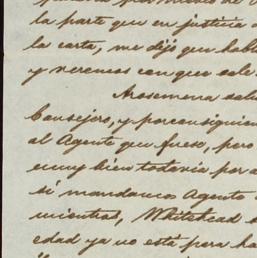 la parte que en justicia
la carta, me dijo que habl
y veremos con que sale
Mosemena
Consejero, y por consiguien
al Agente que fuese, pero
muy bien todavia por
si mandamos Agente
mientras, Whitehead
edad ya no está para ha